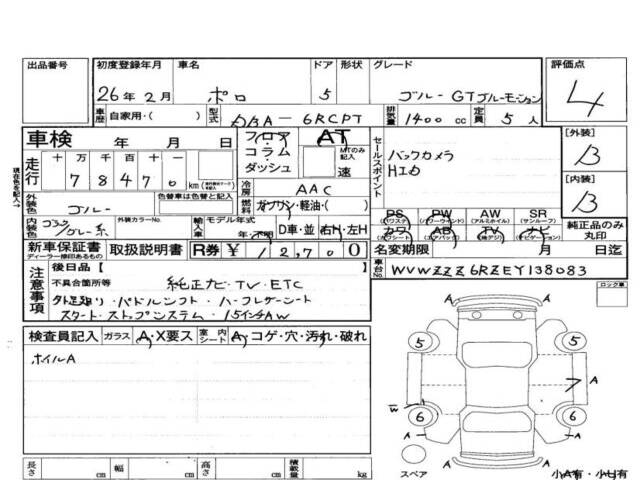 出品番号 初度登録年月 車名 ドア 形状 グレード 評価点
26年2月 ポロ 5 ブルー GTブルーモーション 4
車歴 自家用・( ) 型式 DBA-6RCPT 排気量 1400cc 定員 5人
車検 年 月 日 フロア AT セールスポイント [外装]
走行 十 万 千 百 十 コラム・ MTのみ記入 バックカメラ B
78470 km ダッシュ 速 HID [内装]
現在色を記入→
外装色 ブルー 色替車は色替と記入 冷房 AAC B
燃料 ガソリン・軽油・( )
内装色 ブラック/グレー系 外装カラーNo. 輸入車 モデル年式 年・不明 D車・並 右H・左H
PS PW AW SR
(パワステ) (パワーウインド) (アルミホイル) (サンルーフ)
カワ AB TV ナビ
(カワシート) (エアバッグ) (地デジ) (ナビゲーション)
純正品のみ丸印
新車保証書 取扱説明書 R券 ¥ 12,700 名変期限 月 日迄
ディーラー捺印あるもの
車台No. WVWZZZ6RZEY138083
ロック車
注意事項 後日品[ ]
不具合箇所等 純正ナビ・TV・ETC
・パドルシフト・ハーフレザーシート
スタート・ストップシステム・15インチAW
検査員記入 ガラス A・X要ス 室内シート A・コゲ・穴・汚れ・破れ
ホイルA
A
5 5
A A
7
W
6 6
A A
A
スペア 小A有・小U有
長さ cm 幅 cm 高さ cm 積載量 kg